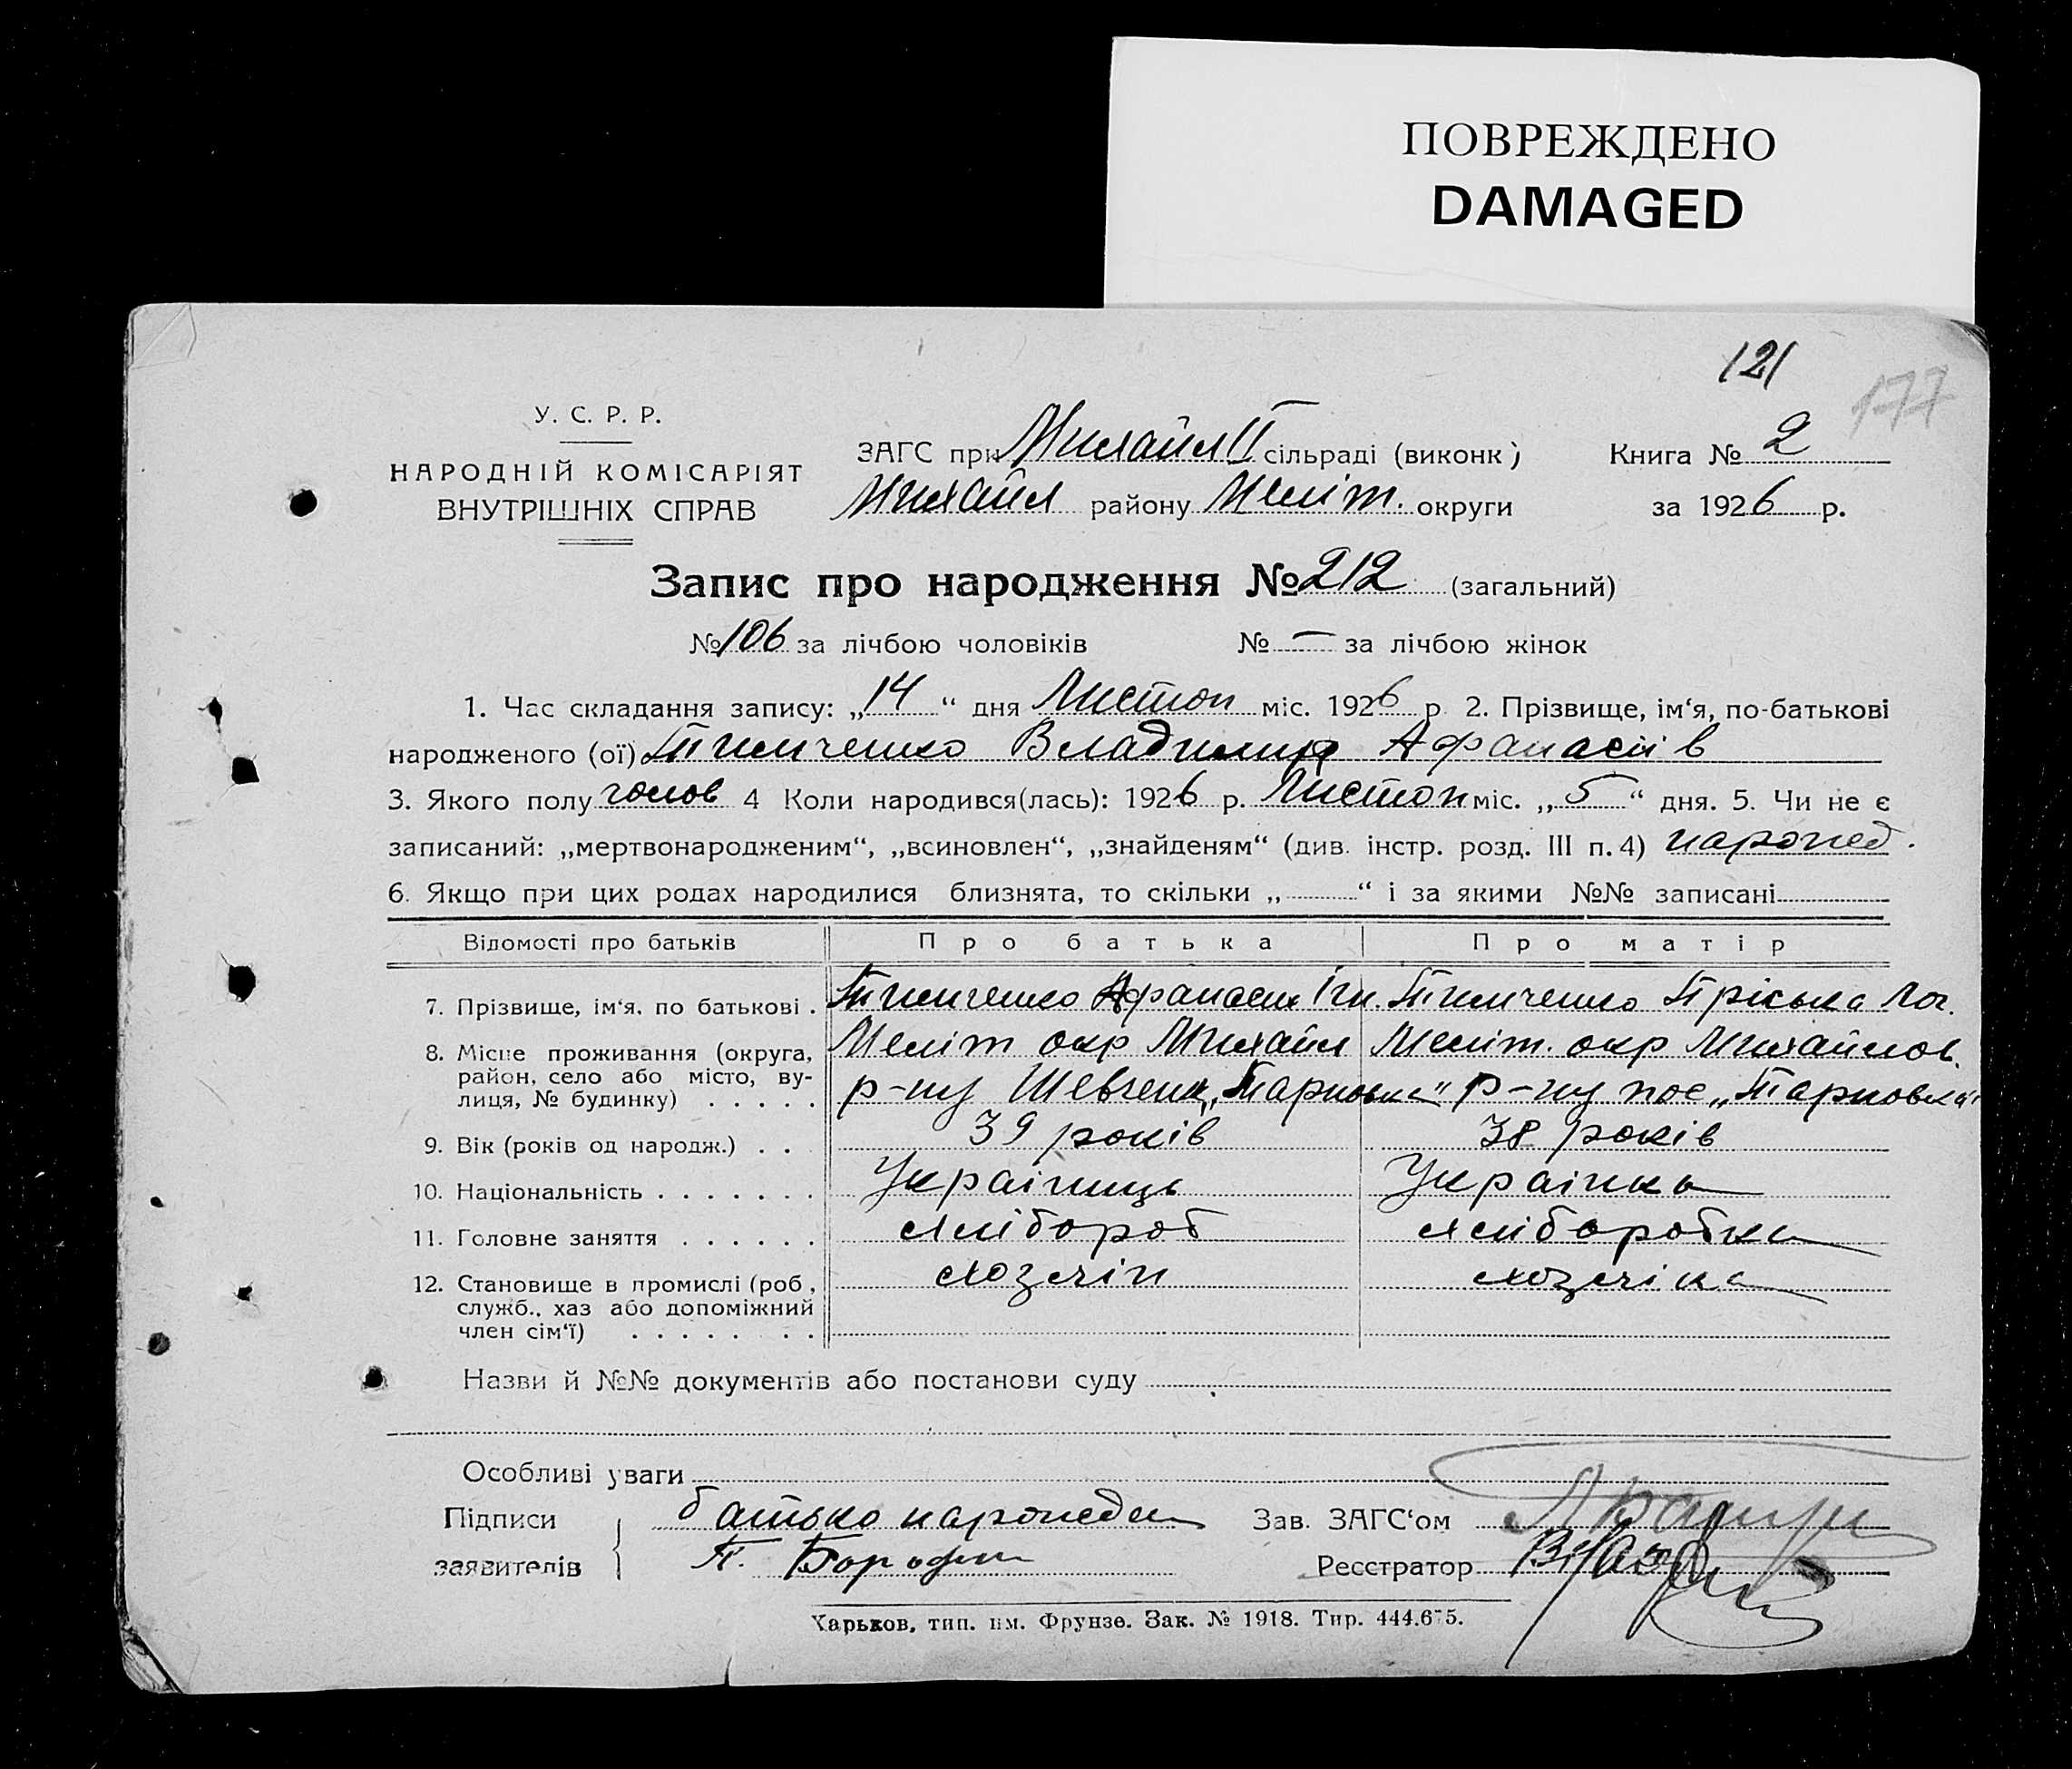 ПОВРЕЖДЕНО
DAMAGED
121
177
У. С. Р. Р.
НАРОДНІЙ КОМІСАРІЯТ
ВНУТРІШНІХ СПРАВ
ЗАГС при Михайл II сільраді (виконк)
Михайл району Меліт. округи
Книга № 2
за 1926 р.
Запис про народження № 212 (загальний)
№ 106 за лічбою чоловіків № — за лічбою жінок
1. Час складання запису: „14“ дня Листоп міс. 1926 р 2. Прізвище, ім‘я, по-батькові
народженого (ої) Тимченко Владимир Афанасіїв
3. Якого полу чолов 4 Коли народився(лась): 1926 р. Листоп міс. „5“ дня. 5. Чи не є
записаний: „мертвонародженим“, „всиновлен“, „знайденям“ (див. інстр. розд. III п. 4) народжед.
6. Якщо при цих родах народилися близнята, то скільки „ “ і за якими №№ записані
Відомості про батьків Про батька Про матір
7. Прізвище, ім‘я. по батькові . Тимченко Афанасий Ігн. Тимченко Пріська Лог.
8. Місце проживання (округа, район, село або місто, вулиця, № будинку) . . . . . Меліт окр Михайл Меліт. окр Михайлов.
р-ну Шевченк „Тарновка“ р-ну пос „Тарновка“
9. Вік (років од народж.) . . 39 років 38 років
10. Національність . . . . . . . Українець Українка
11. Головне заняття . . . . . . хлібороб хліборобка
12. Становище в промислі (роб, служб., хаз або допоміжний член сім‘ї) . . . . . . . хозяін хозяіка
Назви й №№ документів або постанови суду
Особливі уваги
Підписи заявителів батько
Зав. ЗАГС‘ом
Реєстратор
Харьков, тип. им. Фрунзе. Зак. № 1918. Тир. 444.675.